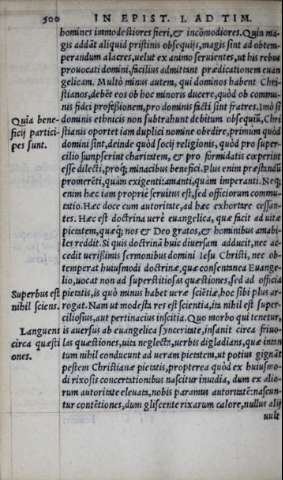 500 IN EPIST. I. AD TIM.
homines immodestiores fieri, et incōmodiores. Quin magis addāt aliquid pristinis obsequijs, magis sint ad obtemperandum alacres, uelut ex animo seruientes, ut his rebus
prouocati domini, facilius admittant prædicationem euangelicam. Multò minus autem, qui dominos habent Christianos, debēt eos ob hoc minoris ducere, quòd ob communis fidei professionem, pro dominis facti sint fratres. Imò si
Quia bene- dominis ethnicis non subtrahunt debitum obsequiū, Chri
ficij partici- stianis oportet iam duplici nomine obedire, primum quòd
pes sunt. domini sint, deinde quòd socij religionis, quòd pro supercilio sumpserint charitatem, et pro formidatis cœperint
esse dilecti, proq; minacibus benefici. Plus enim præstandū
promerēti, quàm exigenti: amanti, quàm imperanti. Neq;
enim hæc iam propriè seruitus est, sed officiorum commutatio. Hæc doce cum autoritate, ad hæc exhortare cessantes. Hæc est doctrina uerè euangelica, quæ facit ad uitæ
pietatem, quæq; nos et Deo gratos, et hominibus amabiles reddit. Si quis doctrinā huic diuersam adducit, nec accedit uerissimis sermonibus domini Iesu Christi, nec obtemperat huiusmodi doctrinæ, quæ consentanea Euangelio, uocat non ad superstitiosas quæstiones, sed ad officia
Superbus est pietatis, is quò minus habet ueræ sciētiæ, hoc sibi plus ar
nihil sciens. rogat. Nam ut modesta res est scientia, ita nihil est superciliosius, aut pertinacius inscitia. Quo morbo qui tenetur,
Languens is auersus ab euangelica synceritate, insanit circa friuo
circa quæsti las quæstiones, uitæ neglecta, uerbis digladians, quæ intan
ones. tum nihil conducunt ad ueram pietatem, ut potius gignāt
pestem Christianæ pietatis, propterea quòd ex huiusmodi rixosis concertationibus nascitur inuidia, dum ex aliorum autoritate eleuata, nobis paramus autoritatē: nascuntur contētiones, dum gliscente rixarum calore, nullus alij
uult